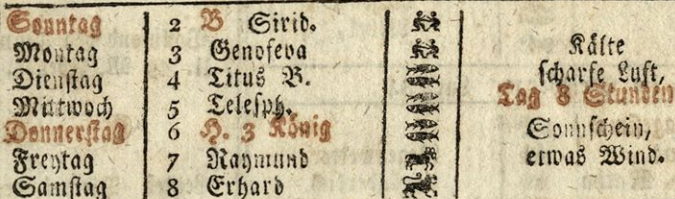 Sonntag 2 B Sirid.
Montag 3 Genofeva Kälte
Dienstag 4 Titus B. scharfe Luft,
Mittwoch 5 Telesph. Tag 8 Stunden
Donnerstag 6 H. 3 König Sonnschein,
Freytag 7 Raymund etwas Wind.
Samstag 8 Erhard